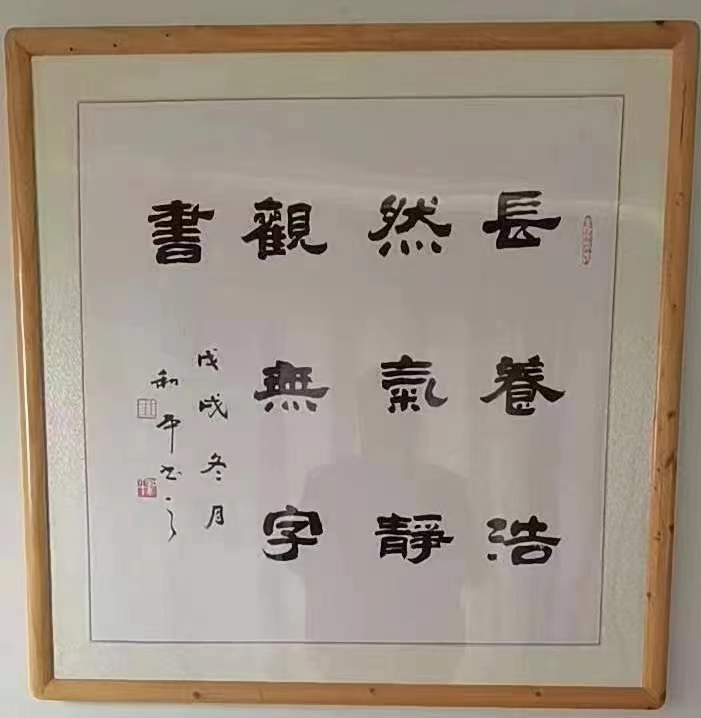 長養浩
然氣靜
觀無字
書
戊戌冬月
和平书之